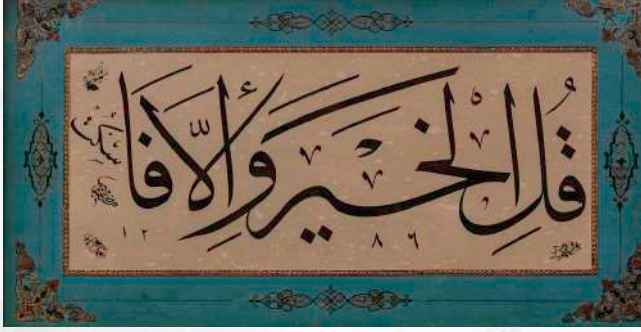 قُلِ الْخَيْرَ وَإِلَّا فَاسْكُتْ
١٢ ٨٦